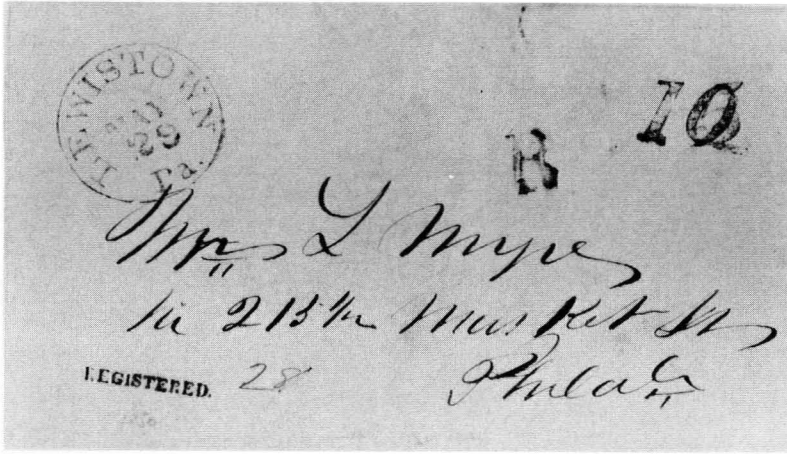 LEWISTOWN
29
Pa.
R
10
Mrs L Myers
213½ Market St
Philada
REGISTERED. 28